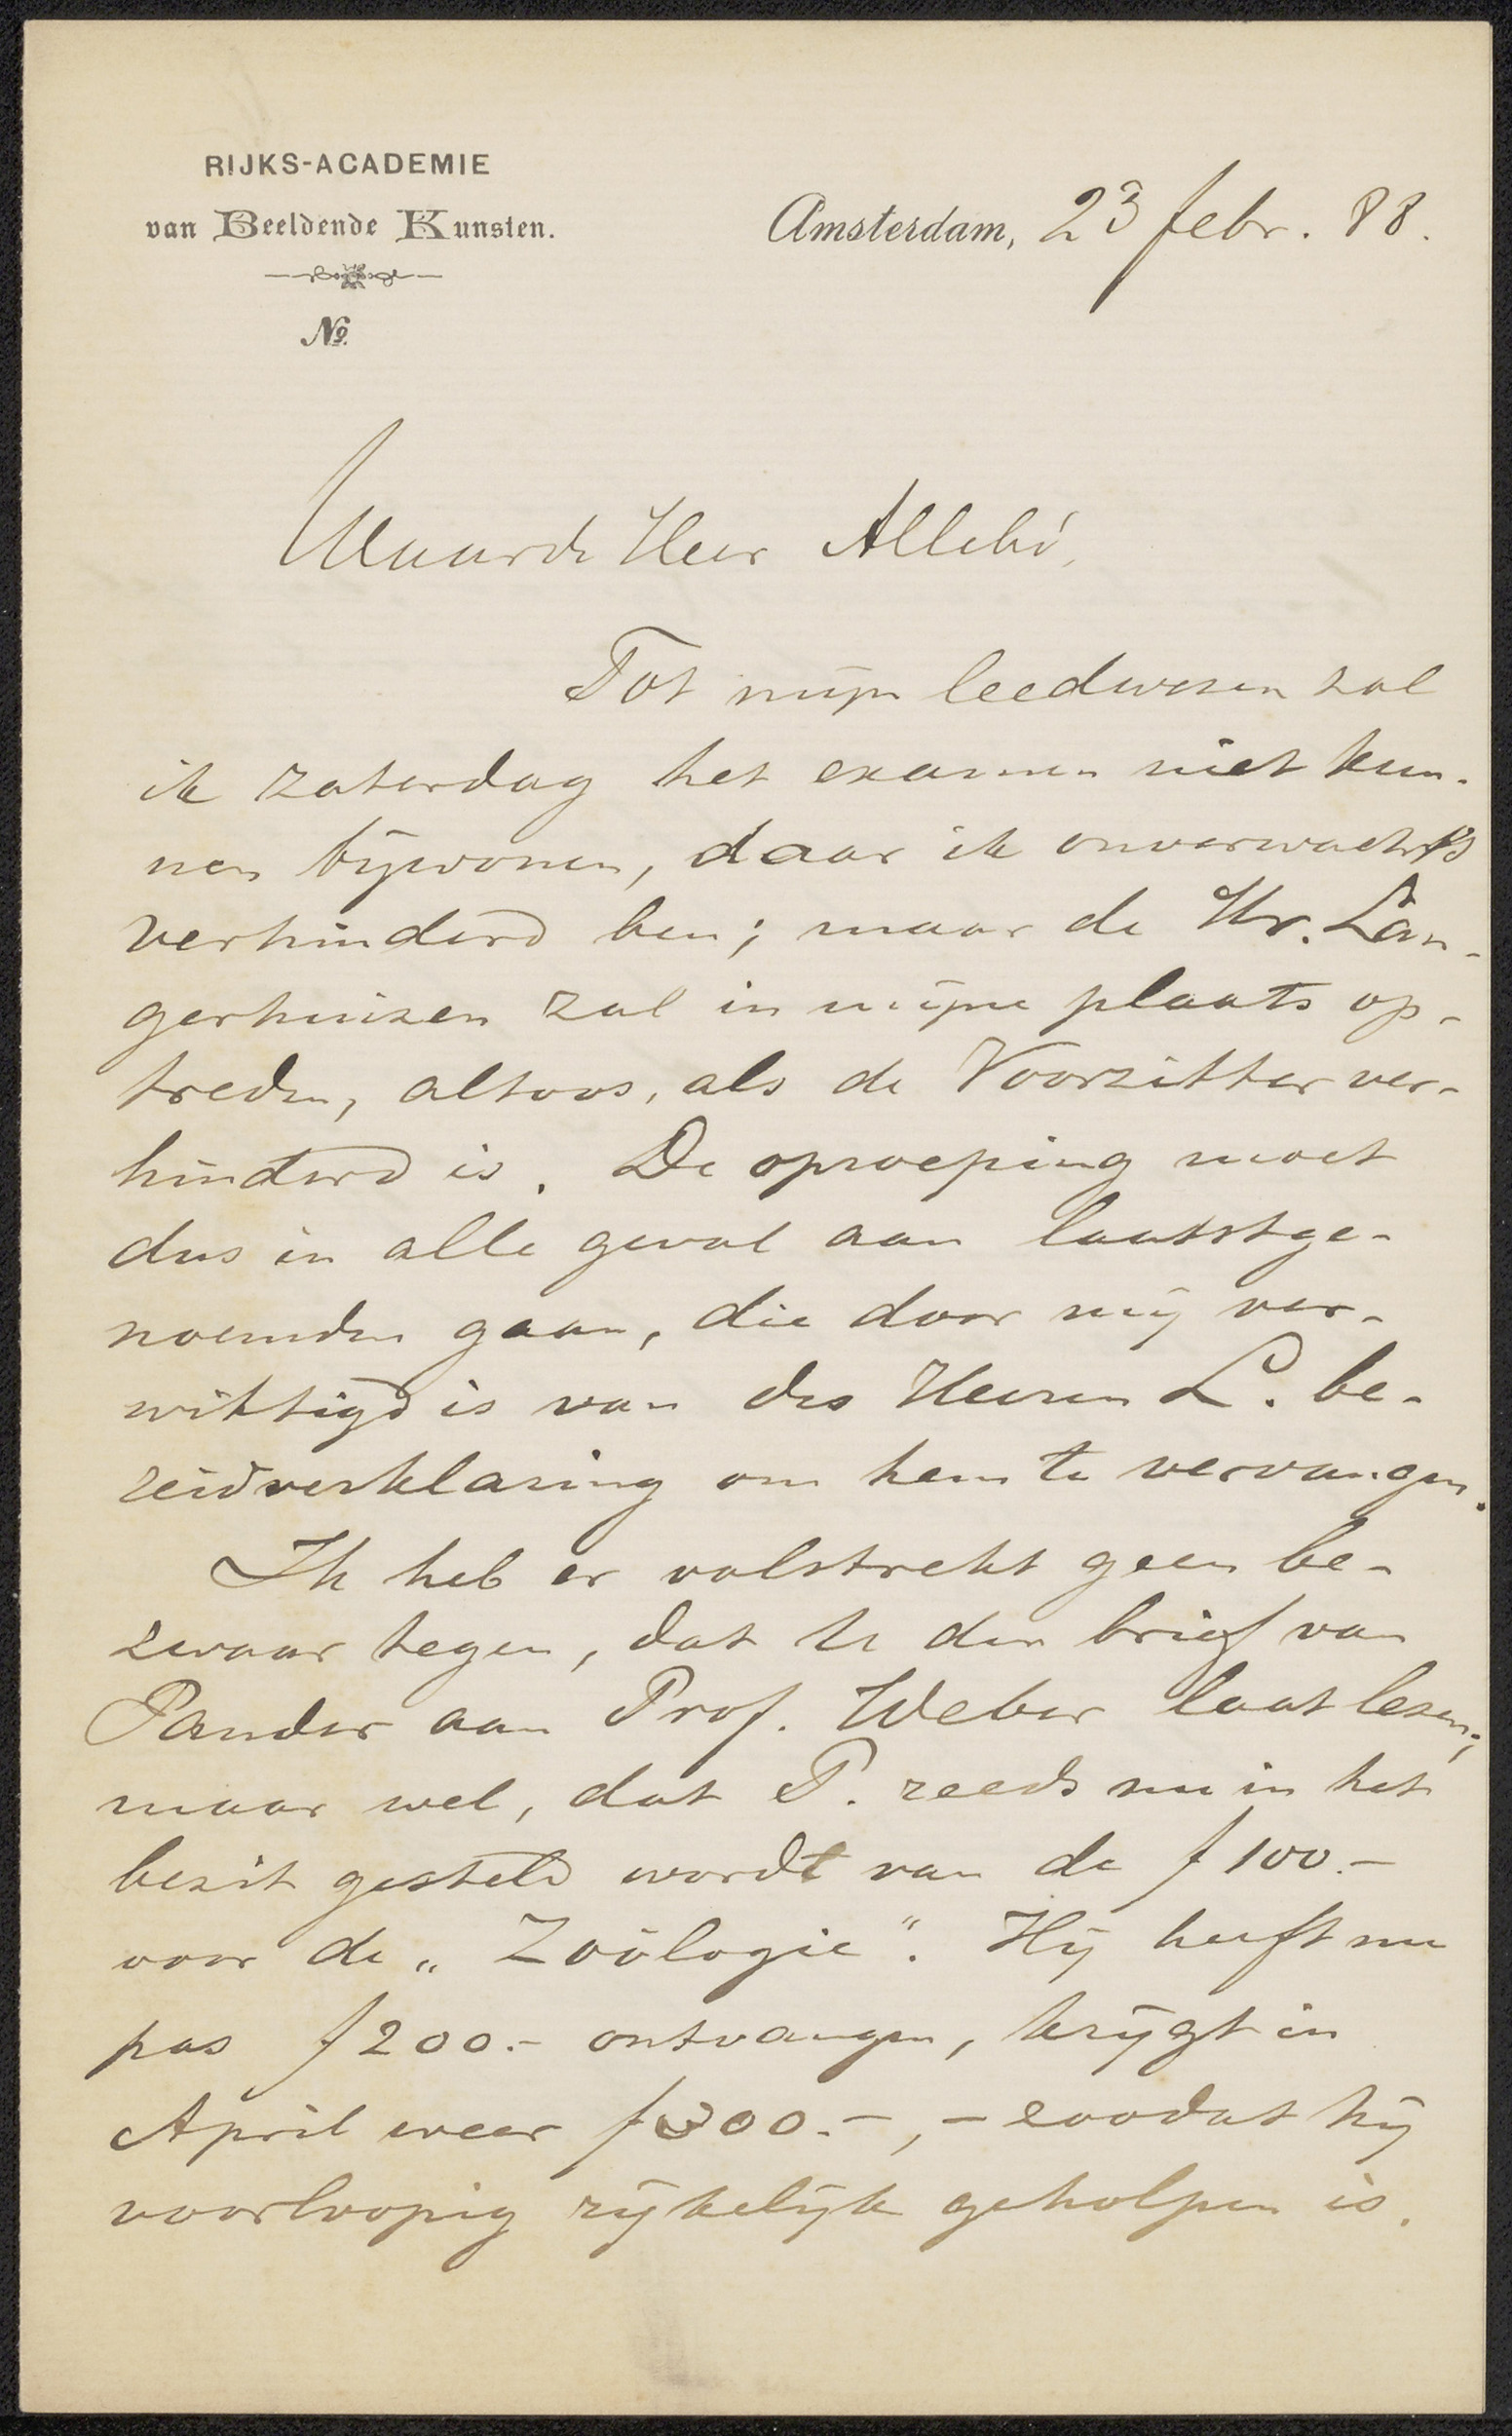 RIJKS-ACADEMIE
van Beeldende Kunsten.
No.
Amsterdam, 23 febr. 88.
Waarde Heer Allebé,
Tot mijn leedwezen zal
ik zaterdag het examen niet kun-
nen bijwonen, daar ik onverwachts
verhinderd ben; maar de Hr. Lan-
gerhuizen zal in mijne plaats op-
treden, altoos, als de Voorzitter ver-
hinderd is. De oproeping moet
dus in alle geval aan laatstge-
noemden gaan, die door mij ver-
wittigd is van des Heeren L. be-
reidverklaring om hem te vervangen.
Ik heb er volstrekt geen be-
zwaar tegen, dat U den brief van
Pander aan Prof. Weber laat lezen;
maar wel, dat P. reeds nu in het
bezit gesteld wordt van de f 100.-
voor de „Zoölogie". Hij heeft nu
pas f 200.- ontvangen, krijgt in
April weer f 300.-, - zoodat hij
voorloopig rijkelijk geholpen is.